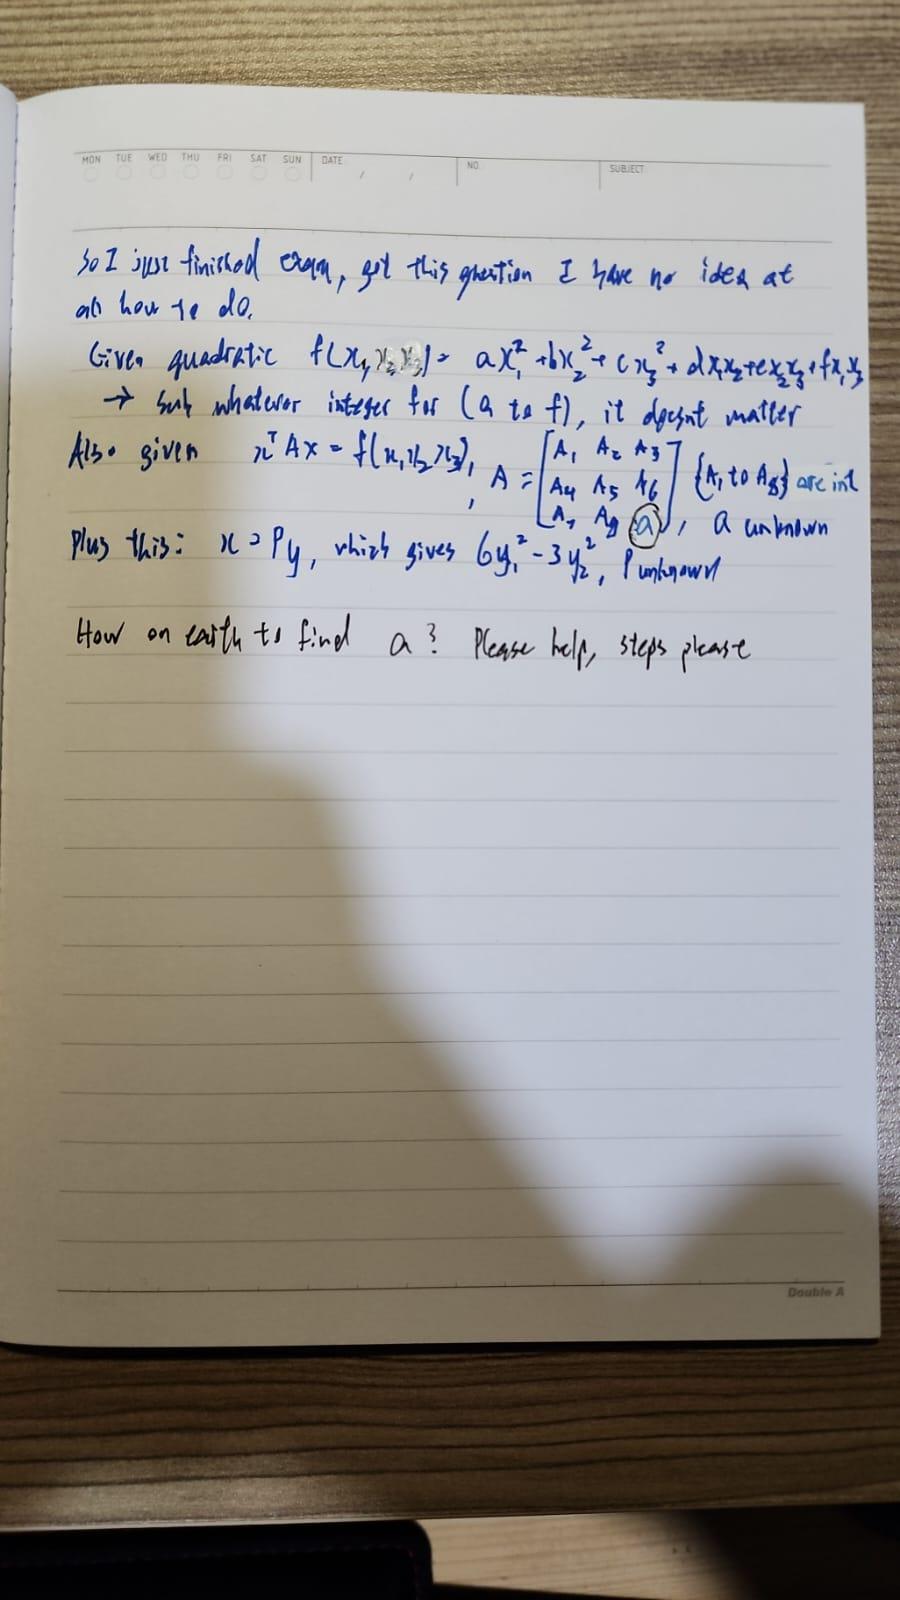 MON TUE WED THU FRI SAT SUN DATE / / NO. SUBJECT
So I just finished exam, got this question I have no idea at
all how to do.
Given quadratic f(x₁,x₂,x₃) = ax₁² + bx₂² + cx₃² + dx₁x₂+ex₂x₃+fx₁x₃
→ Sub whatever integer for (a to f), it doesnt matter
Also given xᵀAx = f(x₁x₂x₃), , A = [A₁ A₂ A₃
A₄ A₅ A₆
A₇ A₈ a], {A₁ to A₈} are int
, a unknown
Plus this: x = Py, which gives 6y₁² - 3y₂², P unknown
How on earth to find a? Please help, steps please
Double A